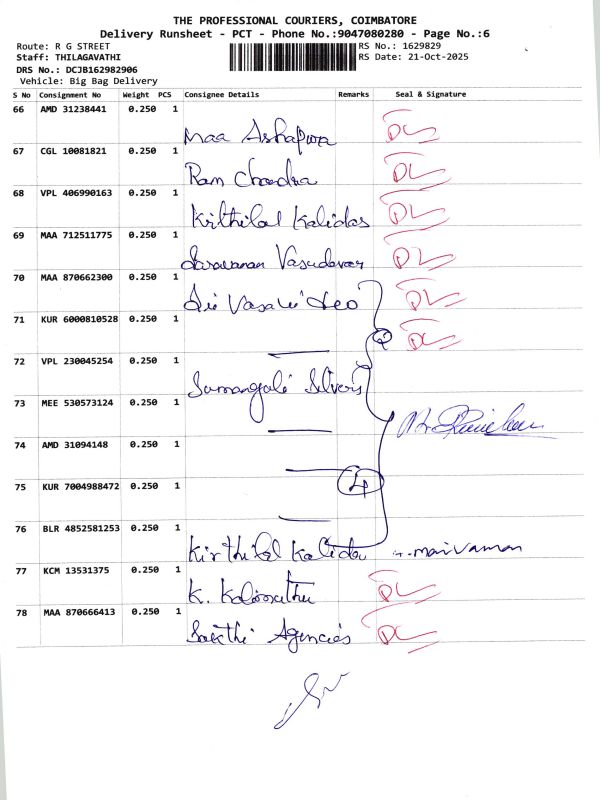 THE PROFESSIONAL COURIERS, COIMBATORE
Delivery Runsheet - PCT - Phone No.:9047080280 - Page No.:6
Route: R G STREET RS No.: 1629829
Staff: THILAGAVATHI RS Date: 21-Oct-2025
DRS No.: DCJB162982906
Vehicle: Big Bag Delivery
S No Consignment No Weight PCS Consignee Details Remarks Seal & Signature
66 AMD 31238441 0.250 1
Maa Ashapura DL
67 CGL 10081821 0.250 1
Ram Chandra DL
68 VPL 406990163 0.250 1
Kirthilal Kalidas DL
69 MAA 712511775 0.250 1
Saravanan Vasudevan DL
70 MAA 870662300 0.250 1
Sri Vasavi DL
71 KUR 6000810528 0.250 1
2 DL
72 VPL 230045254 0.250 1
Sumangali Silvers
73 MEE 530573124 0.250 1
74 AMD 31094148 0.250 1
75 KUR 7004988472 0.250 1
4
76 BLR 4852581253 0.250 1
Kirthilal Kalidas
77 KCM 13531375 0.250 1
K. Kalimuthu DL
78 MAA 870666413 0.250 1
Sakthi Agencies DL